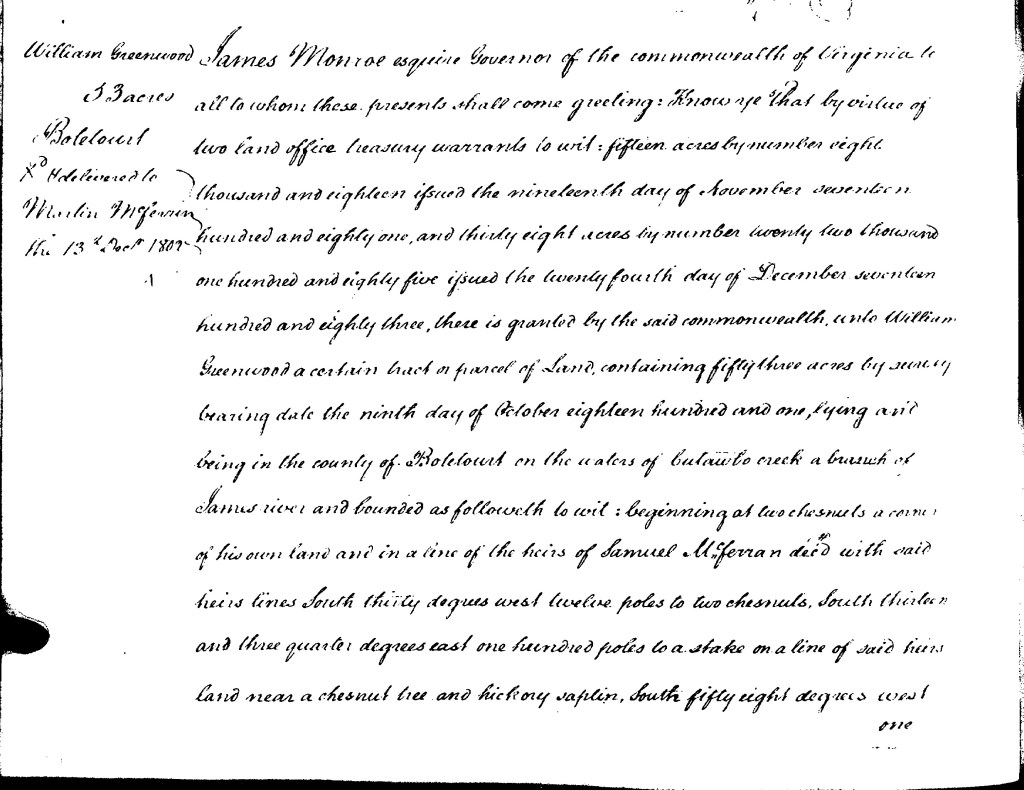 William Greenwood
53 acres
Botetourt
Xd & delivered to
Martin McFerrin
the 13th Decr 1802
James Monroe esquire Governor of the commonwealth of Virginia to
all to whom these presents shall come greeting: Know ye That by virtue of
two land office treasury warrants to wit: fifteen acres by number eight
thousand and eighteen issued the nineteenth day of November seventeen
hundred and eighty one, and thirty eight acres by number twenty two thousand
one hundred and eighty five issued the twenty fourth day of December seventeen
hundred and eighty three, there is granted by the said commonwealth, unto William
Greenwood a certain tract or parcel of Land, containing fifty three acres by survey
bearing date the ninth day of October eighteen hundred and one, lying and
being in the county of Botetourt on the waters of Cutawbo creek a branch of
James river and bounded as followeth to wit: beginning at two chesnuts a corner
of his own land and in a line of the heirs of Samuel McFerran decd with said
heirs lines South thirty degrees west twelve poles to two chesnuts, South thirteen
and three quarter degrees east one hundred poles to a stake on a line of said heirs
land near a chesnut tree and hickory saplin, South fifty eight degrees west
one